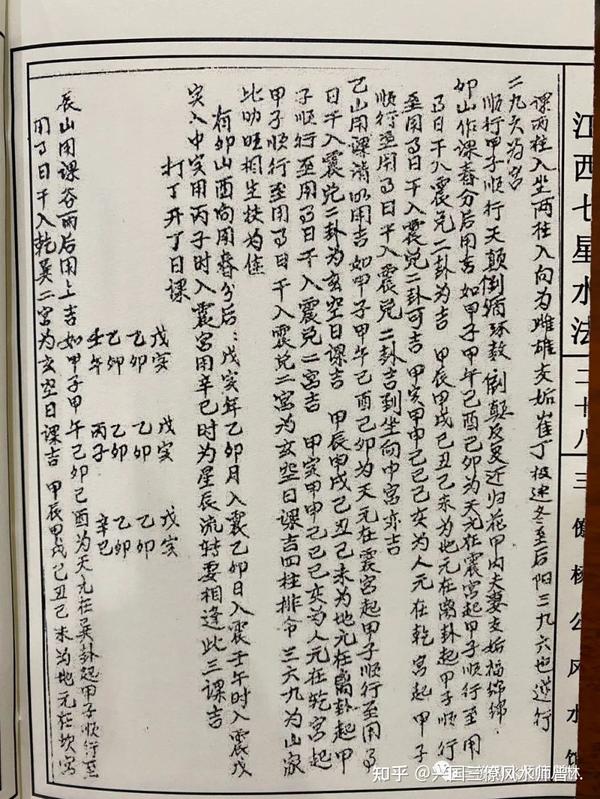 江西七星水法
二十八
三僚杨公风水馆
课两柱入坐两柱入向为雌雄交姤崔丁极速冬至后阳三九六也逆行
二九六为宫
顺行甲子顺行天颠倒循环数 倒颠反复还归花甲内夫妻交姤福绵绵
卯山作课春分后用吉如甲子甲午己酉己卯为天元在震宫起甲子顺行至用
了日干入震兑二卦为吉 甲辰甲戌己丑己未为地元在离卦起甲子顺行
至用了日干入震兑二卦可吉 甲寅甲申己巳己亥为人元在乾宫起甲子
顺行至用了日干入震兑二卦吉到坐向中宫亦吉
乙山用课清明用吉如甲子甲午己酉己卯为天元在震宫起甲子顺行至用了
日干入震兑二卦为玄空日课吉 甲辰甲戌己丑己未为地元在离卦起甲
子顺行至用了日干入震兑二宫吉 甲寅甲申己巳己亥为人元在乾宫起
甲子顺行至用了日干入震兑二宫为玄空日课吉四柱排命三六九为山家
比助旺相生扶为佳
有卯山酉向用春分后:戊寅年乙卯月入震乙卯日入震壬午时入震戊
寅入中寅用丙子时入震宫用辛巳时为星辰流转要相逢此三课吉
打丁开了日课
戊寅 戊寅 戊寅
乙卯 乙卯 乙卯
乙卯 乙卯 乙卯
壬午 丙子 辛巳
辰山用课谷雨后用上吉如甲子甲午己卯己酉为天元在巽卦起甲子顺行至
用了日干入乾巽二宫为玄空日课吉 甲辰甲戌己丑己未为地元在坎宫
知乎 @兴国三僚风水师曾林